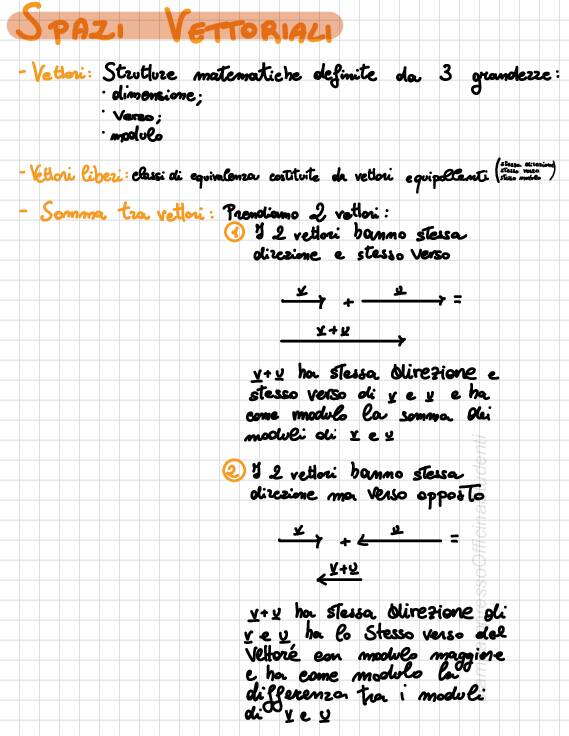 SPAZI VETTORIALI
- Vettori: Strutture matematiche definite da 3 grandezze:
· dimensione;
· verso;
· modulo
- Vettori liberi: classi di equivalenza costituite da vettori equipollenti (stessa direzione
stesso verso
stesso modulo)
- Somma tra vettori: Prendiamo 2 vettori:
① I 2 vettori hanno stessa
direzione e stesso verso
v + u =
v+u
v+u ha stessa direzione e
stesso verso di v e u e ha
come modulo la somma dei
moduli di v e u
② I 2 vettori hanno stessa
direzione ma verso opposto
v + u =
v+u
v+u ha stessa direzione di
v e u, ha lo stesso verso del
vettore con modulo maggiore
e ha come modulo la
differenza tra i moduli
di v e u